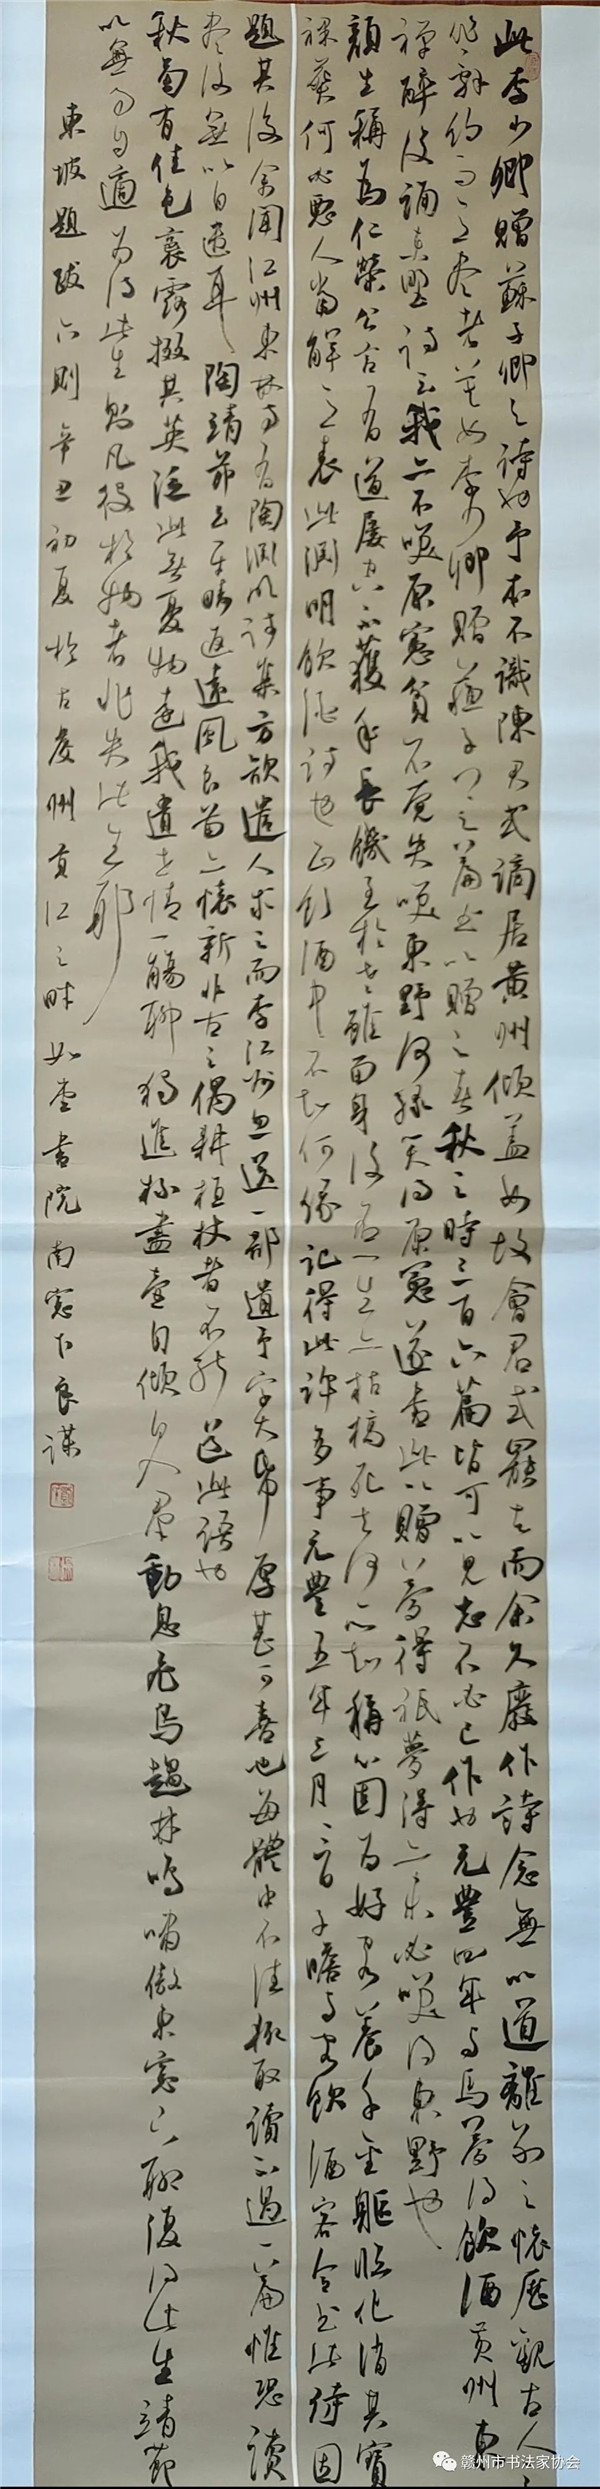 此李少卿赠蘇子卿之詩也予本不識陳君式謫居黄州傾盖如故會君式罷去而余久廢作詩念無以道離别之懷歷觀古人之
作辞约而意盡者莫如李少卿赠蘇子卿之篇書以赠之春秋之時三百六篇皆可以見志不必己作也元豐四年与馬夢得飲酒黄州東
禅醉後誦東野詩云我亦不笑原憲貧不覺失笑東野何缘笑得原憲遂書此以赠夢得衹夢得亦未必笑得東野也
顏生稱為仁榮公言有道屢空不獲年長饑至於老雖留身後名一生亦枯槁死去何所知稱心固為好客養千金軀臨化消其寶
裸葬何必惡人當解意表此淵明飲酒詩也正飲酒中不知何缘記得此許多事元豐五年三月三日子瞻与客飲酒客令書此詩因
題其後余聞江州東林寺有陶淵明詩集方欲遣人求之而李江州忽送一部遺予字大紙厚甚可喜也每體中不佳輒取讀不過一篇惟恐讀
盡後無以自遣耳陶靖節云平疇返遠風良苗亦懷新非古之偶耕植杖者不能道此語也
秋菊有佳色裛露掇其英泛此無憂物遠我遺世情一觴聊獨進杯盡壺自傾日入羣動息飛鳥趨林鳴嘯傲東窓下聊復得此生靖節
以無事自適為得此生則凡役於物者非失此生耶
東坡題跋六則辛丑初夏於古虔州貢江之畔如堂書院南窓下良謀
赣州市书法家协会